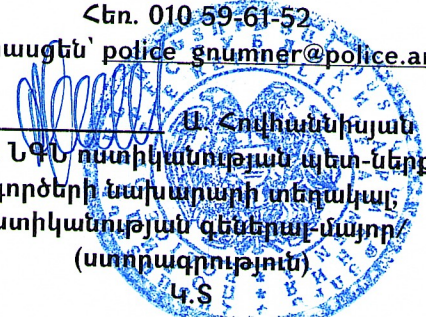 Հեռ. 010 59-61-52
հասցեն՝ police_gnumner@police.am
Ա. Հովհաննիսյան
ՆԳՆ ոստիկանության պետ-ներք
գործերի նախարարի տեղակալ,
ոստիկանության գեներալ-մայոր/
(ստորագրություն)
Կ.Տ